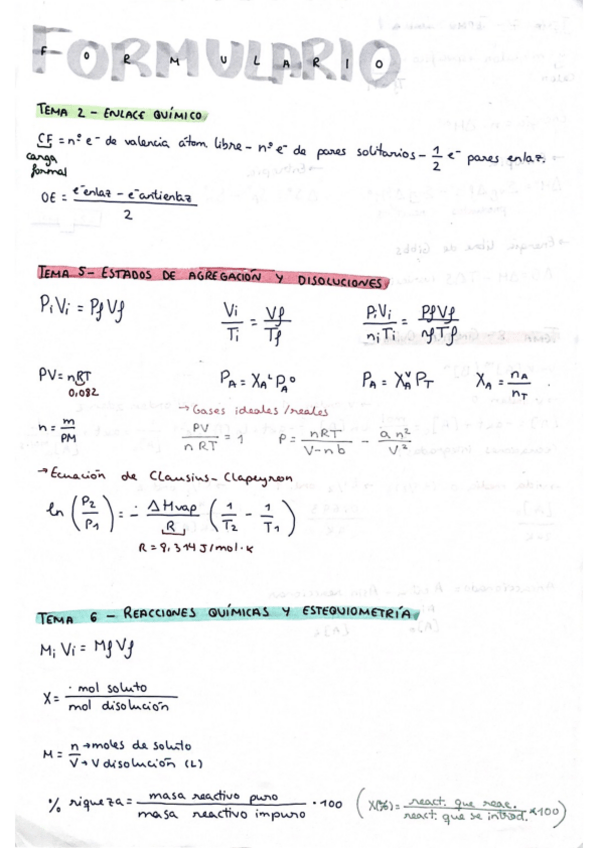 FORMULARIO
TEMA 2 - ENLACE QUÍMICO
CF = nº e- de valencia átom. libre - nº e- de pares solitarios - 1/2 e- pares enlaz.
carga formal
OE = (e-enlaz - e-antienlaz)/2
TEMA 5 - ESTADOS DE AGREGACIÓN Y DISOLUCIONES
PiVi = PfVf Vi/Ti = Vf/Tf PiVi/niTi = PfVf/nfTf
PV = nRT PA = XA^L PA^0 PA = XA^V PT XA = nA/nT
0,082
→ Gases ideales /reales
n = m/PM PV/nRT = 1 P = nRT/(V-nb) - an²/V²
→ Ecuación de Clausius-Clapeyron
ln (P2/P1) = - ΔHvap/R (1/T2 - 1/T1)
R = 8,314 J/mol·K
TEMA 6 - REACCIONES QUÍMICAS Y ESTEQUIOMETRÍA
Mi Vi = Mf Vf
X = mol soluto/mol disolución
M = n/V → moles de soluto
→ V disolución (L)
% riqueza = masa reactivo puro/masa reactivo impuro · 100 (X(%) = react. que reac./react. que se introd. x100)